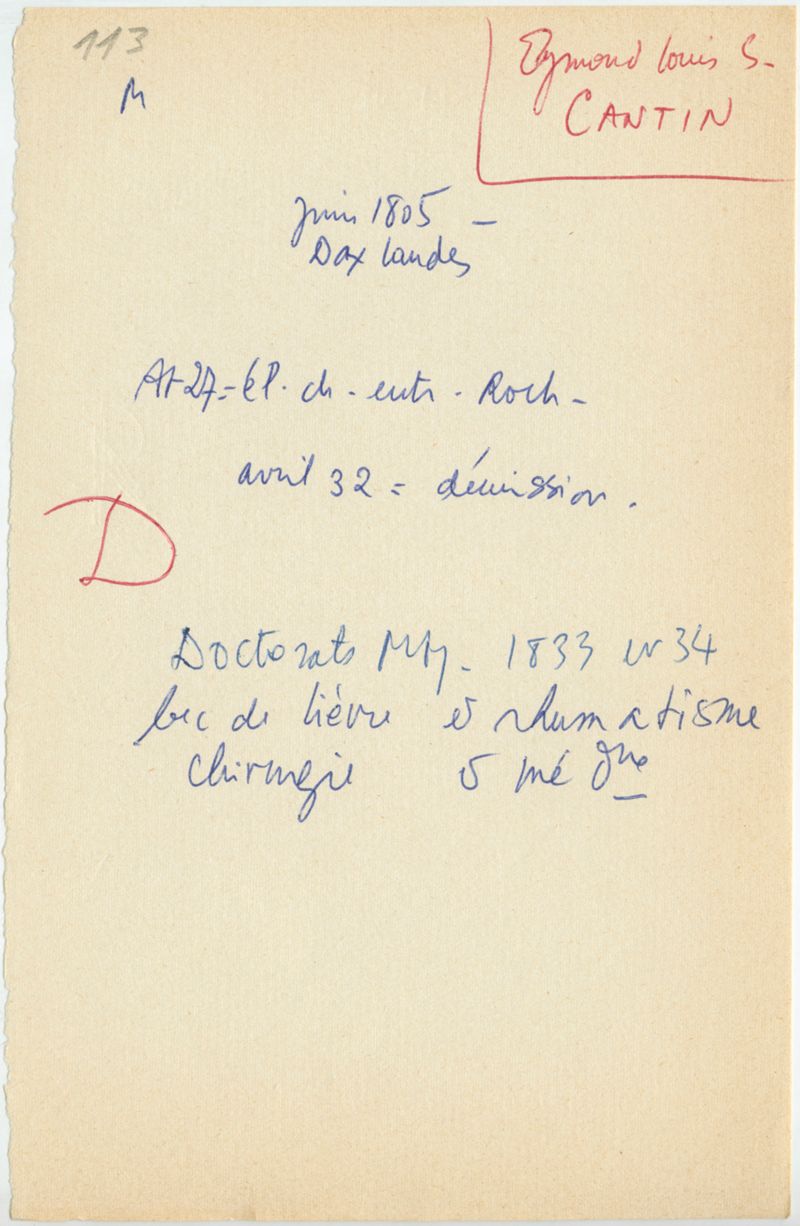 113
M
Eymond Louis S-
CANTIN
juin 1805 -
Dax Landes
At 27 = El. ch. entr. Roch -
avril 32 = démission.
D
Doctorats Mtp. 1833 et 34
bec de lièvre et rhumatisme
chirurgie et méd ne